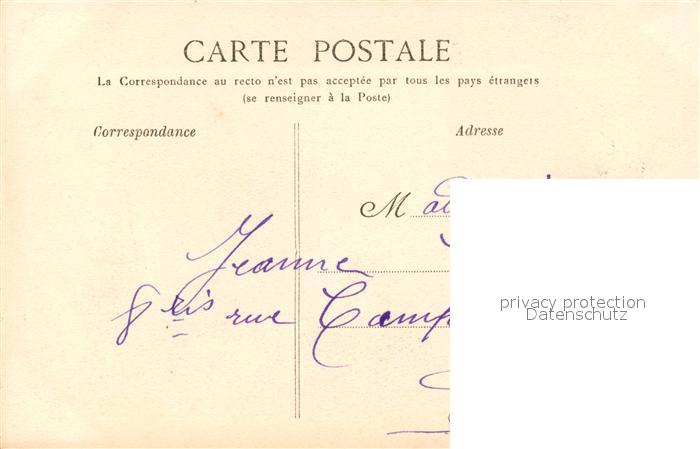 CARTE POSTALE
La Correspondance au recto n'est pas acceptée par tous les pays étrangers
(se renseigner à la Poste)
Correspondance
Adresse
M
Jeanne
8 rue Camp
privacy protection
Datenschutz